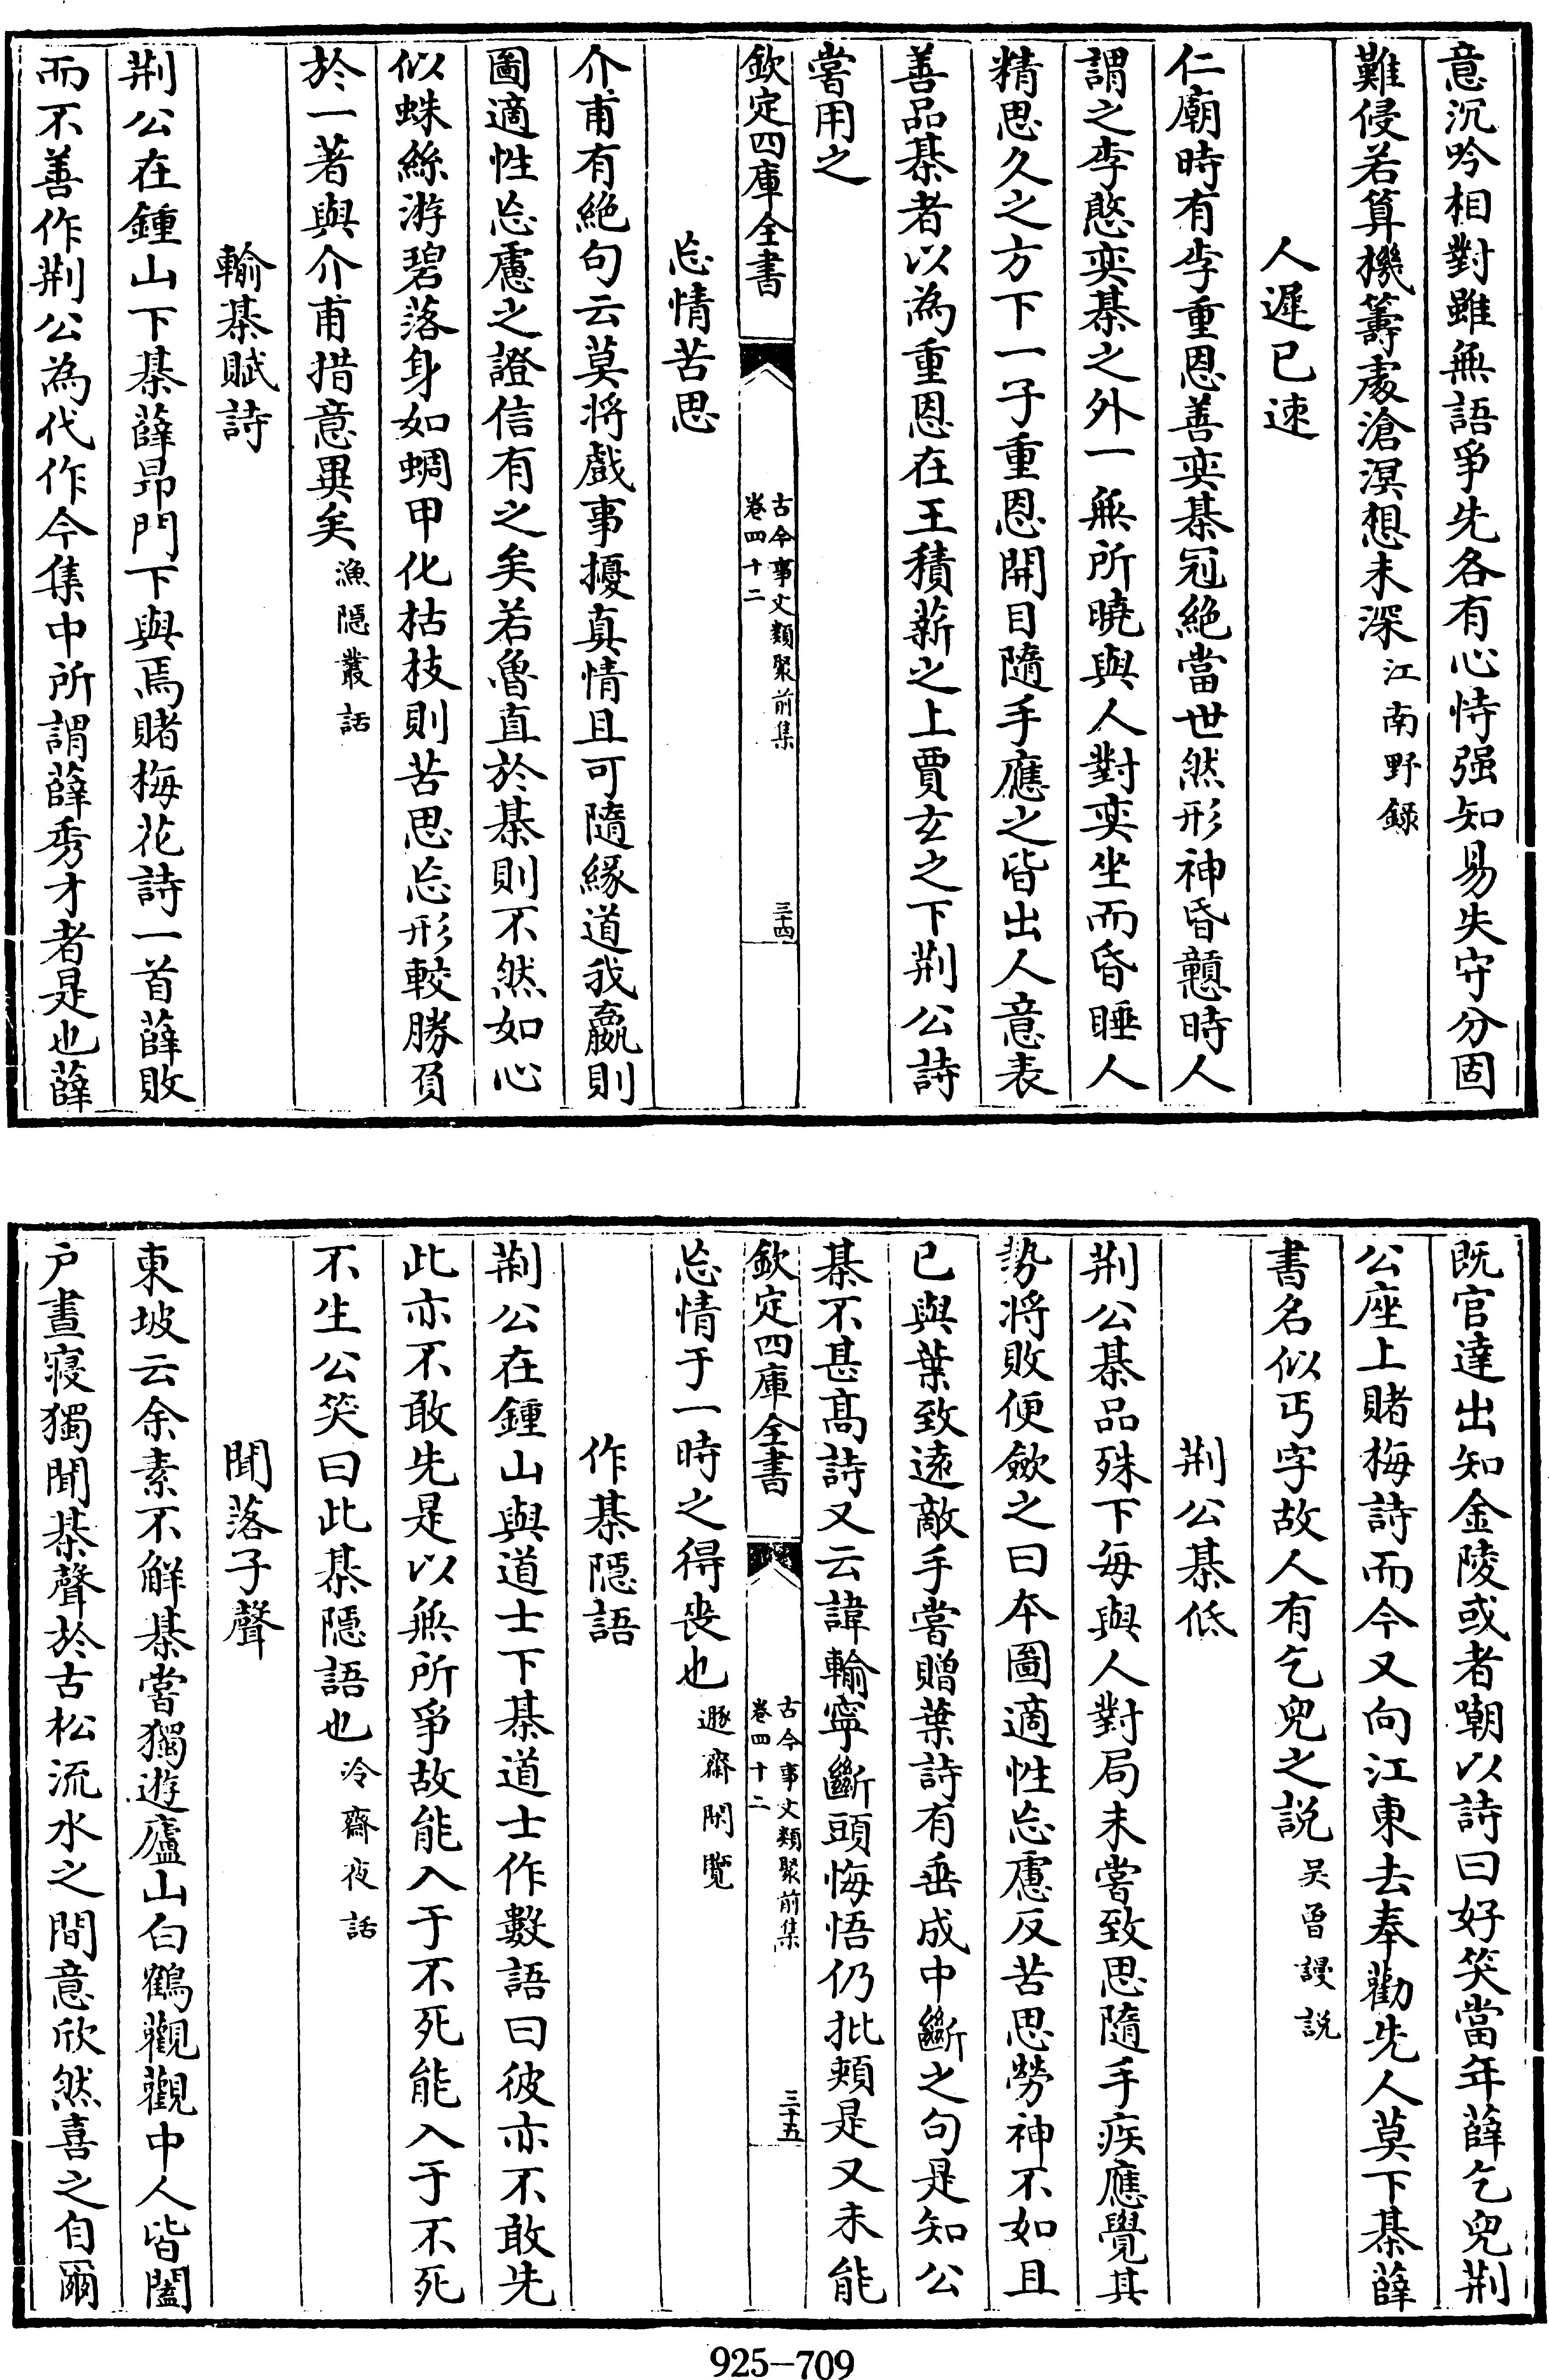 意沉吟相對雖無語爭先各有心恃强知易失守分固
難侵若算機籌處滄溟想未深江南野録
人遲已速
仁廟時有李重恩善奕棊冠絶當世然形神昏戅時人
謂之李憨奕棊之外一無所曉與人對奕坐而昏睡人
精思久之方下一子重恩開目隨手應之皆出人意表
善品棊者以為重恩在王積薪之上賈玄之下荆公詩
嘗用之
欽定四庫全書
古今事文類聚前集
卷四十二
三十四
忘情苦思
介甫有絶句云莫將戲事擾真情且可隨緣道我羸則
圖適性忘慮之證信有之矣若魯直於棊則不然如心
似蛛絲游碧落身如蜩甲化枯枝則苦思忘形較勝負
於一著與介甫措意異矣漁隱叢話
輸棊賦詩
荆公在鍾山下棊薛昂門下與焉賭梅花詩一首薛敗
而不善作荆公為代作今集中所謂薛秀才者是也薛
既官達出知金陵或者嘲以詩曰好笑當年薛乞兒荆
公座上賭梅詩而今又向江東去奉勸先人莫下棊薛
書名似丐字故人有乞兒之説吴曾謾説
荆公棊低
荆公棊品殊下每與人對局未嘗致思隨手疾應覺其
勢將敗便斂之曰本圖適性忘慮反苦思勞神不如且
已與葉致遠敵手嘗贈葉詩有垂成中斷之句是知公
棊不甚髙詩又云諱輸寧斷頭悔悟仍批頰是又未能
欽定四庫全書
古今事文類聚前集
卷四十二
三十五
忘情于一時之得喪也遯齋閑覽
作棊隱語
荆公在鍾山與道士下棊道士作數語曰彼亦不敢先
此亦不敢先是以無所爭故能入于不死能入于不死
不生公笑曰此棊隱語也冷齋夜話
聞落子聲
東坡云余素不解棊嘗獨遊廬山白鶴觀觀中人皆闔
户晝寢獨聞棊聲於古松流水之間意欣然喜之自爾
925-709